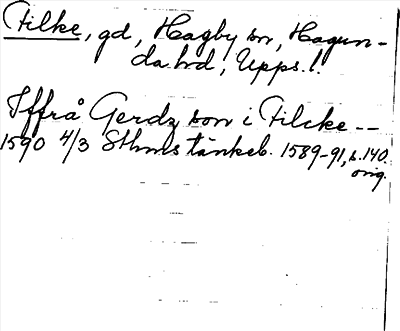 Filke, gd, Hagby sn, Hagun-
da hd, Upps. l.
Iffrå Gerdz son i Filcke --
1590 4/3 Sthms tänkeb. 1589-91, s. 140.
orig.